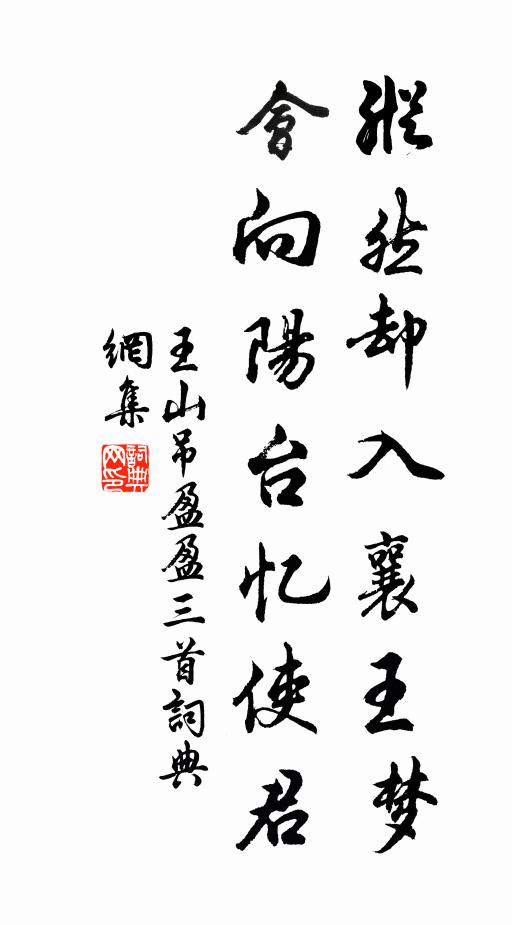 縱然却入襄王梦
會向陽台忆使君
王山吊盈盈三首詞典
網集
詞典
网印